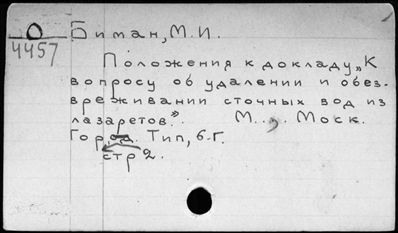 О
4457
Биман, М. И.
Положения к докладу „К
вопросу об удалении и обез-
вреживании сточных вод из
лазаретов". М., Моск.
Город. Тип, б.г.
стр 2.